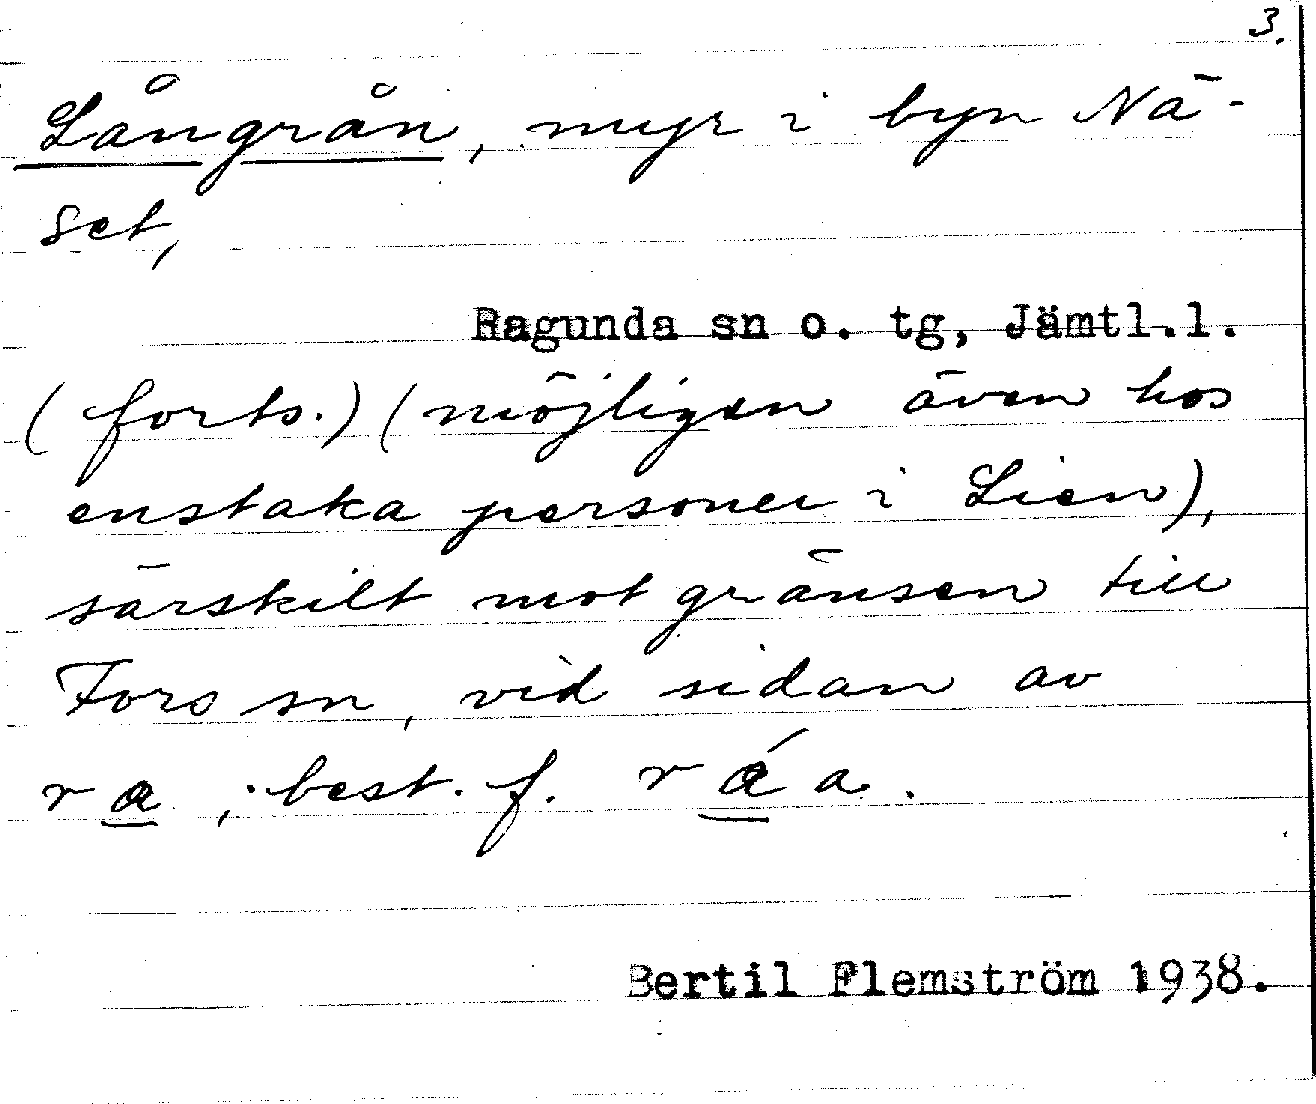 3.
Långrån, myr i byn Nä-
set,
Ragunda sn o. tg, Jämtl.l.
(forts.) (möjligen även hos
enstaka personer i Lien),
särskilt mot gränsen till
Fors sn, vid sidan av
ra ; best. f. ráa.
Bertil Flemström 1938.